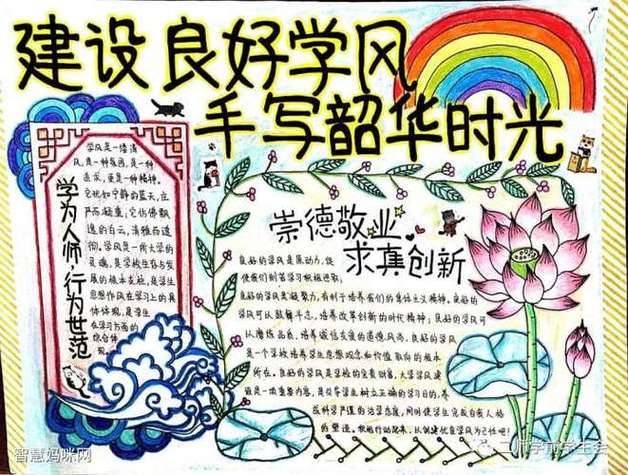 建设良好学风
手写韶华时光
学为人师,行为世范
学风是一缕清
风,是一种氛围,是一种
追求,更是一种精神。
它犹如宁静的蓝天,庄
严而凝重,它仿佛飘
逸的白云,清雅而透
彻。学风是一所大学的
灵魂,是学校生存与发
展的根本支柱,是学生
思想作风在学习上的具
体体现,是学生
在学习方面的
综合体
现。
崇德敬业
求真创新
良好的学风是原动力,促
使我们刻苦学习积极进取;
良好的学风是凝聚力,有利于培养我们的集体主义精神。良好的
学风可以鼓舞斗志,培养改革创新的时代精神;良好的学风可
以磨炼品质,培养诚信友爱的道德风尚。良好的学风
是一个学校培养学生思想观念和价值取向的根本
所在。良好的学风是学校的宝贵财富,大学学风建
设是一项重要内容,是引导学生树立正确的学习目的,养
成科学严谨的治学态度,同时使学生完成自我人格
的塑造。积极行动起来,以创建优良学风为己任吧!
智慧妈咪网
二师学前学生会